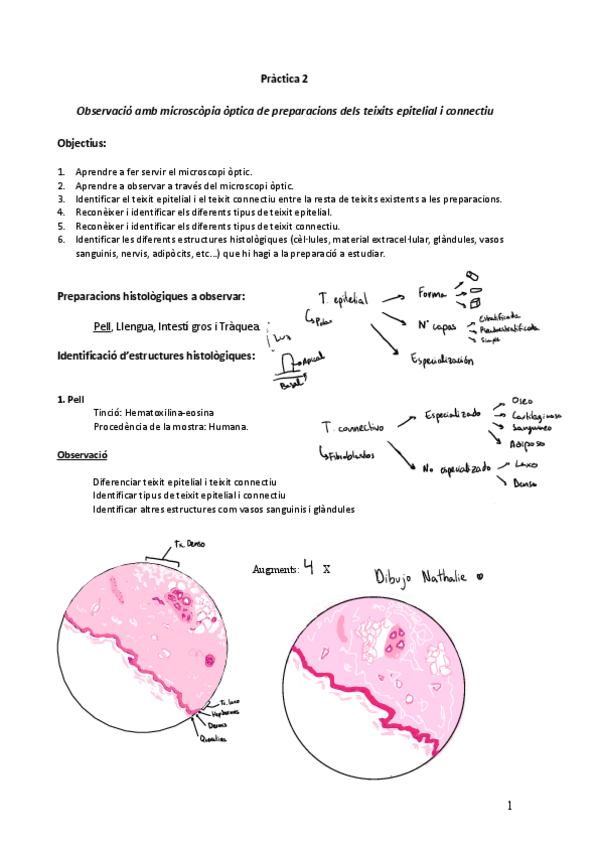 Pràctica 2
Observació amb microscòpia òptica de preparacions dels teixits epitelial i connectiu
Objectius:
1. Aprendre a fer servir el microscopi òptic.
2. Aprendre a observar a través del microscopi òptic.
3. Identificar el teixit epitelial i el teixit connectiu entre la resta de teixits existents a les preparacions.
4. Reconèixer i identificar els diferents tipus de teixit epitelial.
5. Reconèixer i identificar els diferents tipus de teixit connectiu.
6. Identificar les diferents estructures histològiques (cèl·lules, material extracel·lular, glàndules, vasos
sanguinis, nervis, adipòcits, etc...) que hi hagi a la preparació a estudiar.
Preparacions histològiques a observar:
T. epitelial
Polar
Forma
Nº capas
Estratificada
Pseudoestratificada
Simple
Especialización
Pell, Llengua, Intestí gros i Tràquea.
Luz
Apical
Basal
Identificació d'estructures histològiques:
1. Pell
Tinció: Hematoxilina-eosina
Procedència de la mostra: Humana.
T. connectivo
Fibroblastos
Especializado
Oseo
Cartilaginoso
Sanguineo
Adiposo
No especializado
Laxo
Denso
Observació
Diferenciar teixit epitelial i teixit connectiu
Identificar tipus de teixit epitelial i connectiu
Identificar altres estructures com vasos sanguinis i glàndules
Tx. Denso
Augments: 4 X
Dibujo Nathalie
Tx. Laxo
Dermis
1